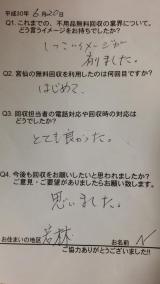 平成30年 6月20日
Q1.これまでの、不用品無料回収の業界について、
どう言うイメージをお持ちでしたか?
しつこいイメージが
有りました。
Q2.宮仙の無料回収を利用したのは何回目ですか?
はじめて、
Q3.回収担当者の電話対応や回収時の対応は
どうでしたか?
とても良かった。
Q4.今後も回収をお願いしたいと思われましたか?
ご意見・ご要望がありましたらお願い致します。
思いました。
お住まいの地区 若林 お名前 N
ご協力ありがとうございました!!